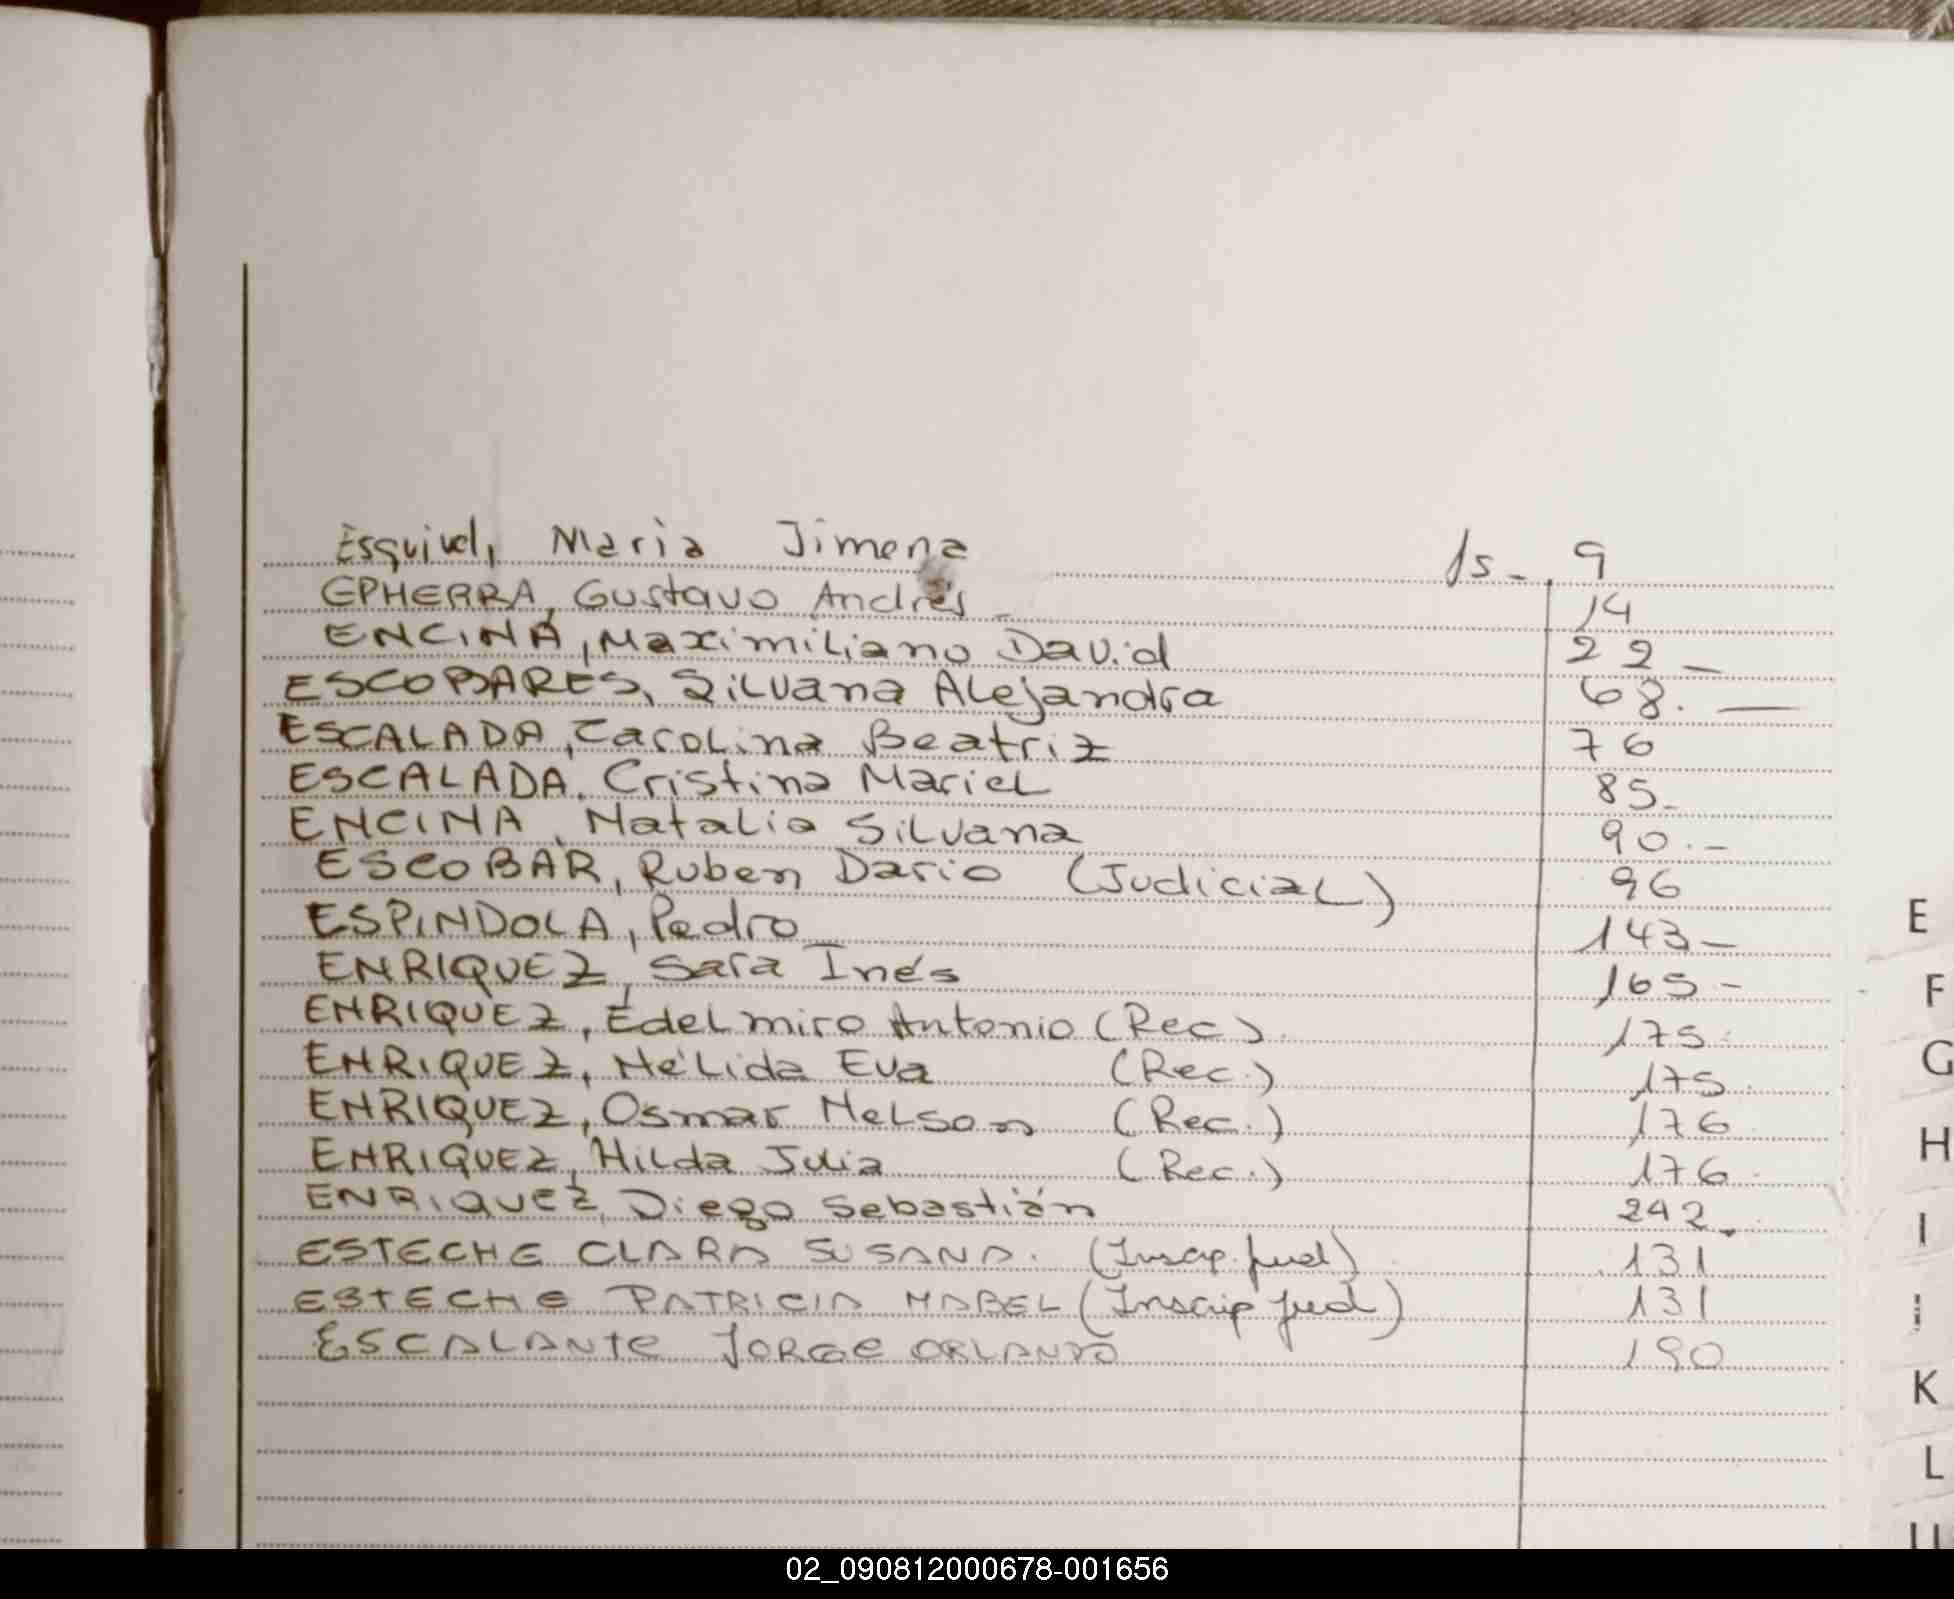 Esquivel, Maria Jimena fs- 9
EPHERRA, Gustavo Andrés 14
ENCINA, Maximiliano David 22 -
ESCOBARES, Silvana Alejandra 68. —
ESCALADA, Carolina Beatriz 76
ESCALADA, Cristina Mariel 85-
ENCINA, Natalia Silvana 90.-
ESCOBAR, Ruben Dario (Judicial) 96
ESPINDOLA, Pedro 143-
ENRIQUEZ, Sara Inés 165-
ENRIQUEZ, Edelmiro Antonio (Rec) 175.
ENRIQUEZ, Nélida Eva (Rec.) 175.
ENRIQUEZ, Osmar Nelson (Rec.) 176
ENRIQUEZ, Hilda Julia (Rec.) 176.
ENRIQUEZ, Diego Sebastián 242.
ESTECHE CLARA SUSANA. (Inscip. jud) 131
ESTECHE PATRICIA MABEL (Inscrip jud) 131
ESCALANTE JORGE ORLANDO 190
E
F
G
H
I
K
L
02_090812000678-001656